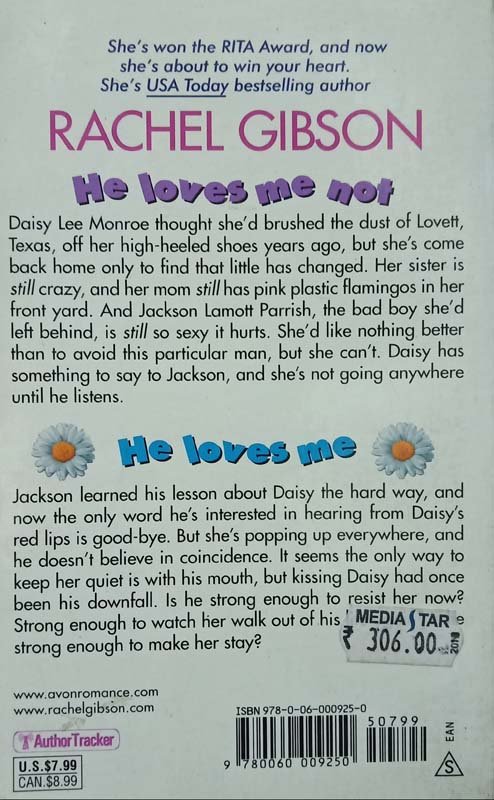 She's won the RITA Award, and now
she's about to win your heart.
She's USA Today bestselling author
RACHEL GIBSON
He loves me not
Daisy Lee Monroe thought she'd brushed the dust of Lovett,
Texas, off her high-heeled shoes years ago, but she's come
back home only to find that little has changed. Her sister is
still crazy, and her mom still has pink plastic flamingos in her
front yard. And Jackson Lamott Parrish, the bad boy she'd
left behind, is still so sexy it hurts. She'd like nothing better
than to avoid this particular man, but she can't. Daisy has
something to say to Jackson, and she's not going anywhere
until he listens.
He loves me
Jackson learned his lesson about Daisy the hard way, and
now the only word he's interested in hearing from Daisy's
red lips is good-bye. But she's popping up everywhere, and
he doesn't believe in coincidence. It seems the only way to
keep her quiet is with his mouth, but kissing Daisy had once
been his downfall. Is he strong enough to resist her now?
Strong enough to watch her walk out of his
strong enough to make her stay?
MEDIA STAR
₹ 306.00
www.avonromance.com
www.rachelgibson.com
AuthorTracker
U.S.$7.99
CAN.$8.99
ISBN 978-0-06-000925-0
50799
9 780060 009250
EAN
S